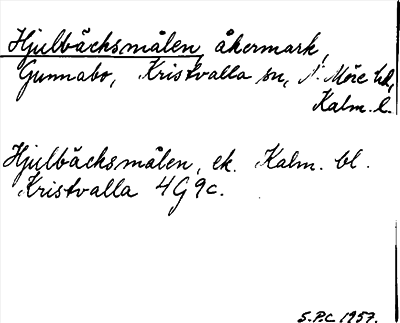 Hjulbäcksmålen, åkermark,
Gunnabo, Kristvalla sn, N. Möre hd,
Kalm. l.
Hjulbäcksmålen, ek. Kalm. bl.
Kristvalla 4G9c.
S.P.C. 1957.